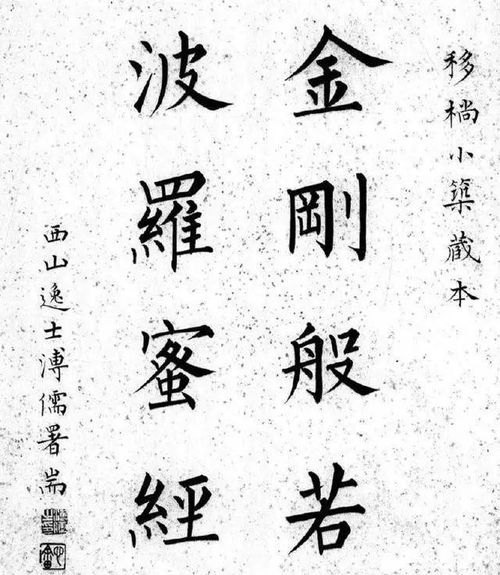 移橢小築蔵本
金剛般若
波羅蜜經
西山逸士溥儒署耑